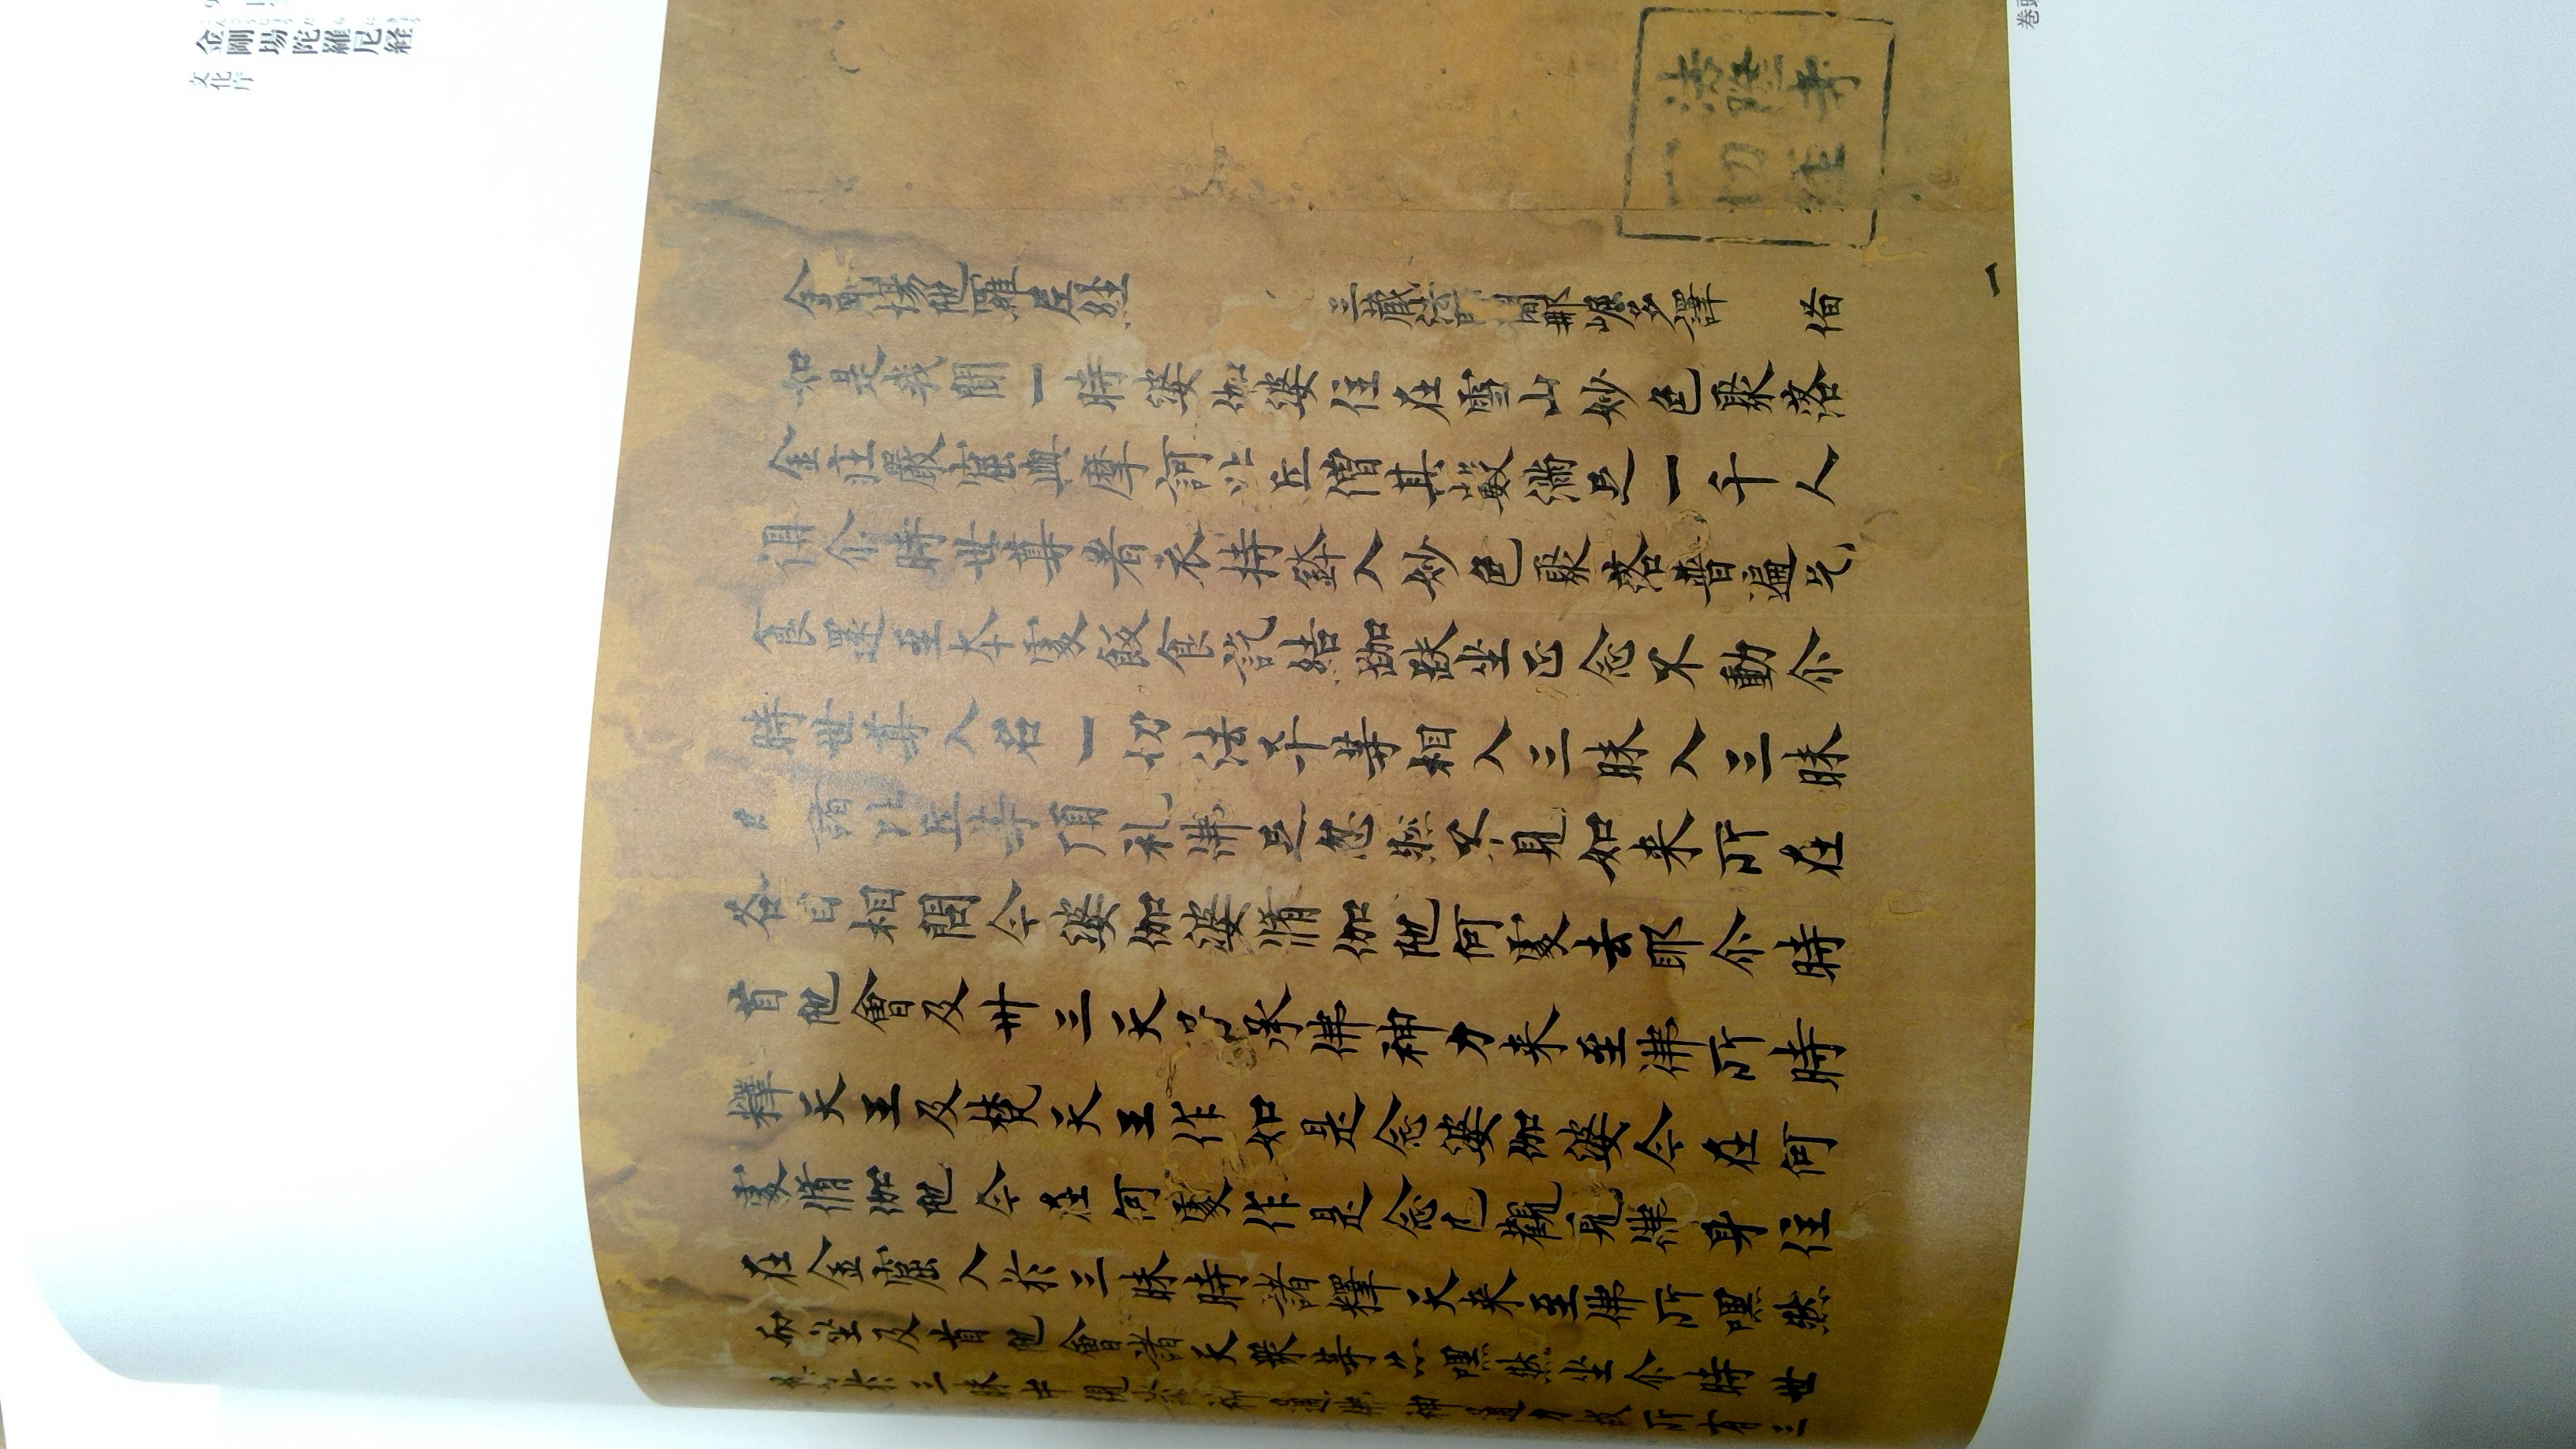 金剛場陀羅尼経
文化庁
法隆寺
一切経
一
金剛場陁羅尼經 三藏闍那崛多譯 偕
如是我聞一時婆伽婆住在雪山妙色聚落
金莊嚴窟與摩訶比丘僧其數滿足一千人
俱尒時世尊著衣持鉢入妙色聚落普遍乞
食還至本處飯食訖結跏趺坐正念不動尒
時世尊入名一切法平等相入三昧入三昧
諸比丘等頂礼佛足忽然不見如来所在
各自相問今婆伽婆脩伽陁何處去耶尒時
首陁會及卅三天承佛神力来至佛所時
釋天王及梵天王作如是念婆伽婆今在何
處脩伽陁今在何處作是念已觀見佛身住
在金窟入於三昧時諸釋天来至佛所嘿然
而坐及首陁會諸天衆等亦嘿然坐尒時世
三昧 現 神通 神通力故所有三